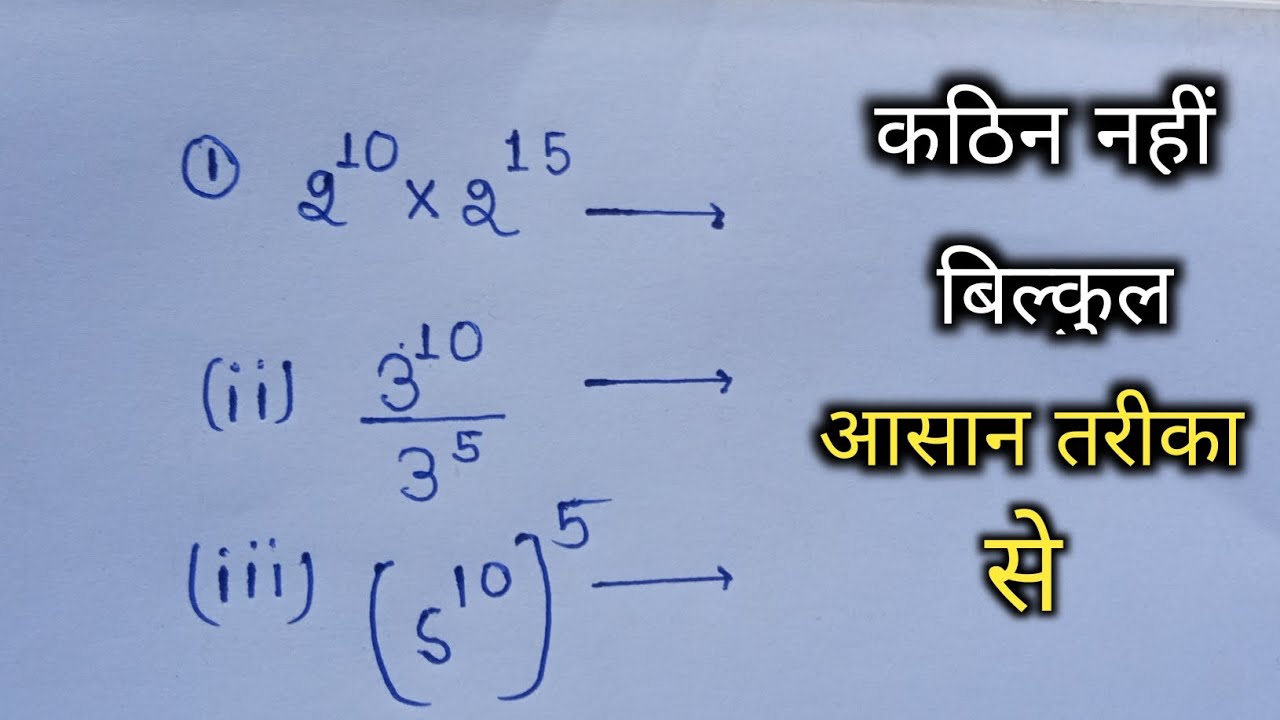 ① 2^10 × 2^15 →
(ii) 3^10 / 3^5 →
(iii) (5^10)^5 →
कठिन नहीं
बिल्कुल
आसान तरीका
से